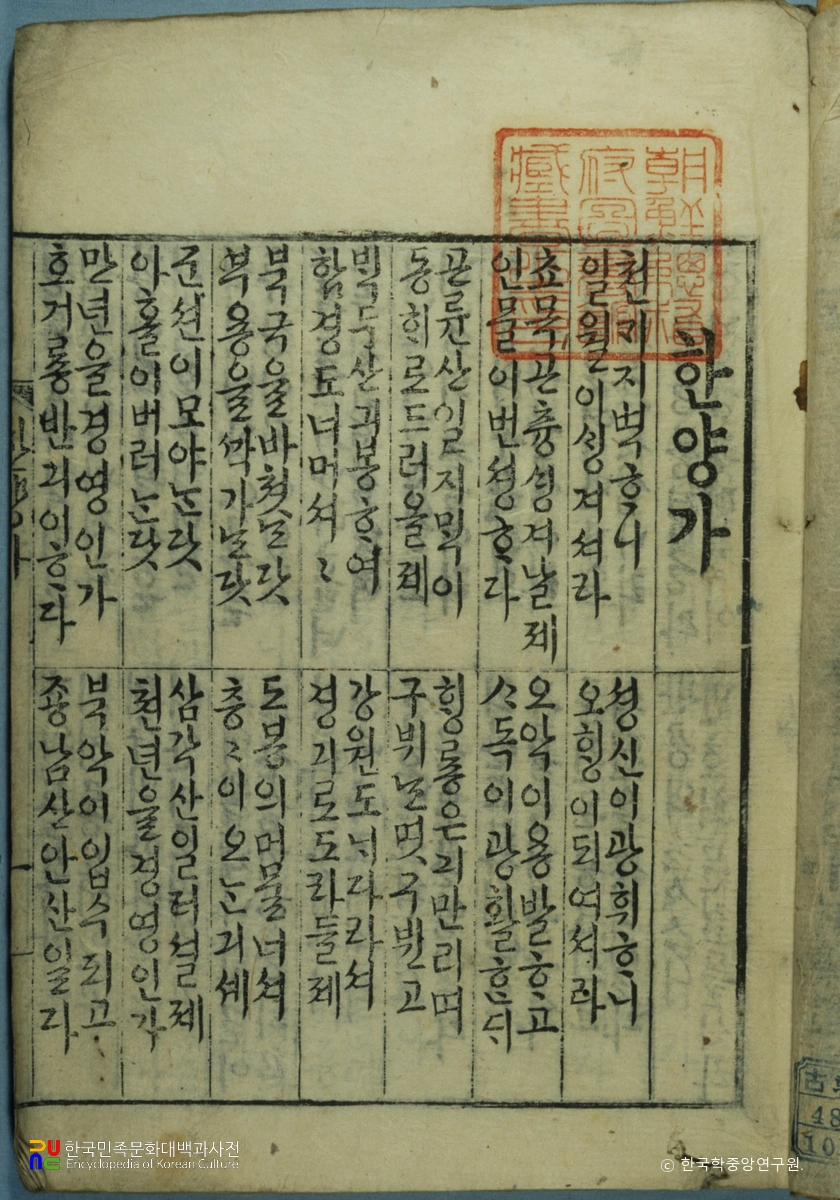 朝鮮總督
府圖書館
藏書之印
한양가
천ᄀᆡ지벽ᄒᆞ니
일월이ᄉᆡᆼ겨셔라
셩신이광휘ᄒᆞ니
오ᄒᆡᆼ이되여셔라
쵸목곤츙ᄉᆡᆼ겨날제
인믈이번셩ᄒᆞ다
오악이용발ᄒᆞ고
ᄉᆞ독이광활ᄒᆞᆫᄃᆡ
곤륜산일지ᄆᆡᆨ이
동ᄒᆡ로드러올제
ᄒᆡᆼ룡은긔만리며
구뷔ᄂᆞᆫ몃구뷘고
ᄇᆡᆨ두산긔봉ᄒᆞ여
함경도너머셔〻
강원도ᄂᆡ다라셔
경긔로도라들제
북국을바쳣ᄂᆞᆫ닷
부용을ᄭᅡᆨ가ᄂᆞᆫ닷
도봉의머물너셔
층〻이오ᄂᆞᆫ긔셰
군션이모야ᄂᆞᆫ닷
아홀이버러ᄂᆞᆫ닷
삼각산일터셜제
쳔년을경영인가
만년을경영인가
호거룡반긔이ᄒᆞ다
북악이입슈되고
죵남산안산일다
古朝
48
10
한국민족문화대백과사전
Encyclopedia of Korean Culture
© 한국학중앙연구원.